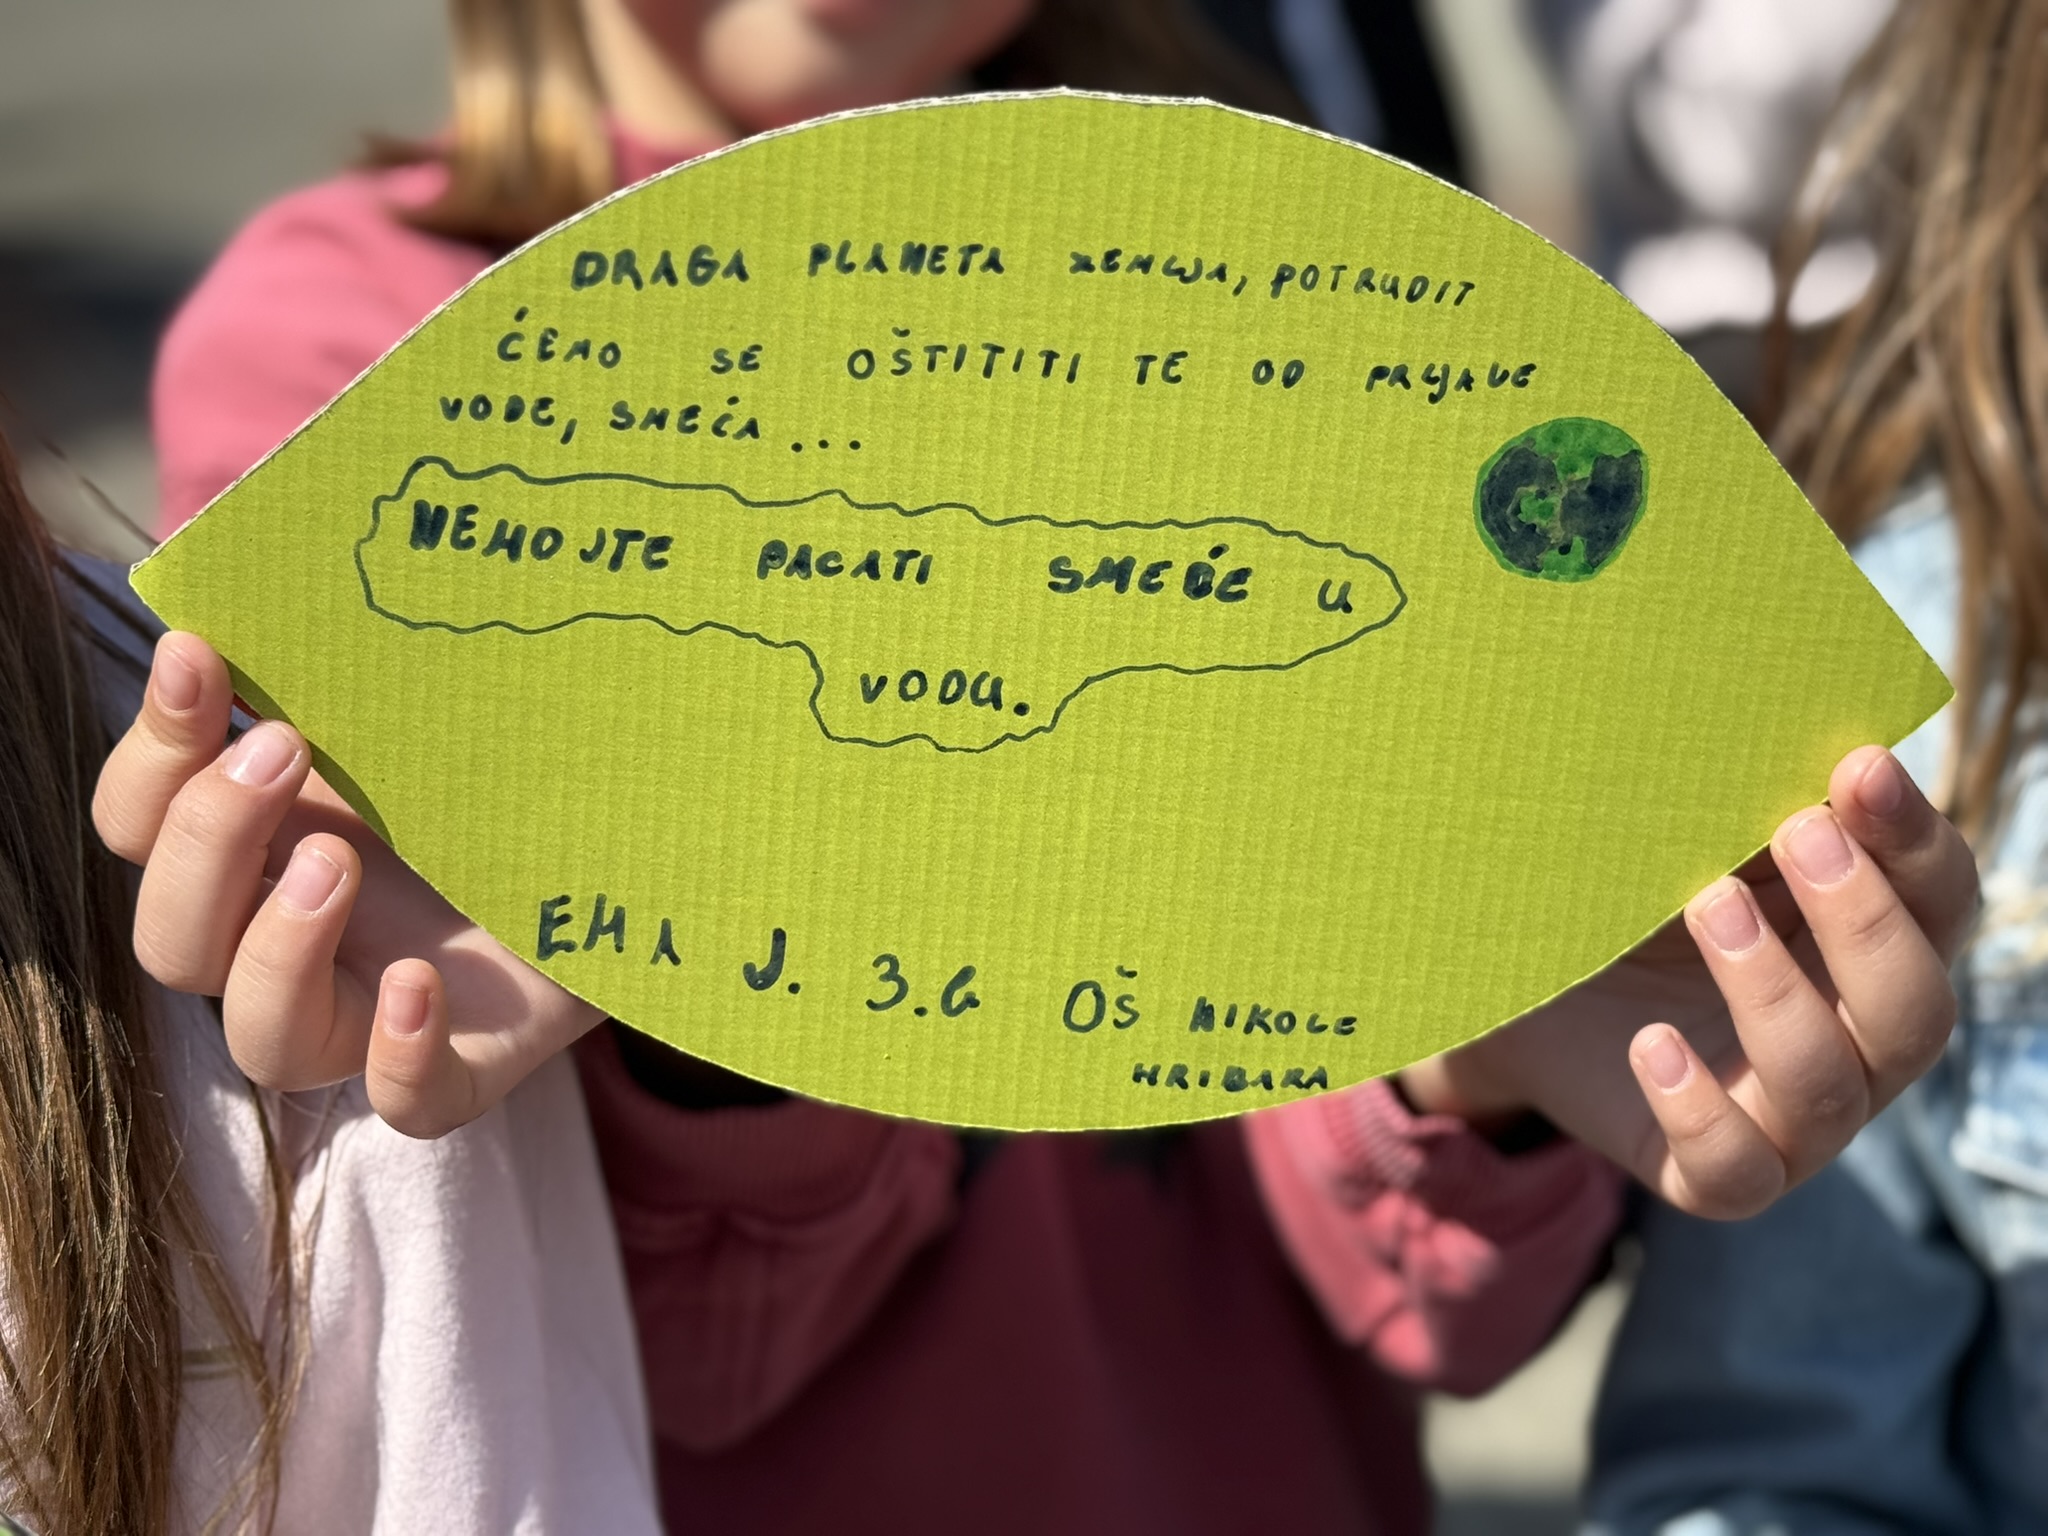 DRAGA PLANETA ZEMLJA, POTRUDIT
ĆEMO SE OŠTITITI TE OD PRLJAVE
VODE, SMEĆA ...
NEMOJTE PACATI SMEĆE U
VODU.
EMA J. 3.G OŠ NIKOLE
HRIBARA